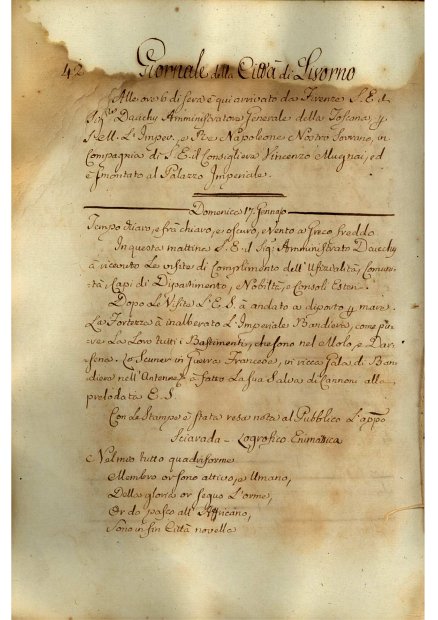 42 Giornale della Città di Livorno
Alle ore 6 di sera è qui arrivato da Firenze S. E. il
Sig.re Dauchy Amministratore Generale della Toscana p
S. M. L'Imper. e Re Napoleone Nostro Sovrano, in
Compagnia di S. E. il Consigliere Vincenzo Mugnai, ed
è smontato al Palazzo Imperiale.
Domenica 17. Gennajo
Tempo chiaro, e fra chiaro, e oscuro, e Vento a Greco freddo
In questa mattina S. E. il Sig. Amministrato Dauchy
à ricevuto le visite di Complimento dell' Ufizialità, Comuni-
tà, Capi di Dipartimento, Nobiltà, e Consoli Esteri
Dopo Le Visite L' E. S. à andato a diporto p mare.
La Fortezza à inalberato L' Imperiale Bandiera, come pu-
re La Loro tutti i Bastimenti, che sono nel Molo, e Dar-
sena. Lo Scuner in Guerra Francese, in ricca Gala di Ban-
diera nell' Antenne à fatto La sua Salva di Cannoni alla
prelodata E. S.
Con Le Stampe è stata resa nota al Pubblico L' app.
Sciarada - Logrofico Enimatica
Nel mio tutto quadriforme
Membro or sono attivo, e Umano,
Della gloria or seguo L' orme,
Or do pasco all' Affricano,
Sono in fin Città novella